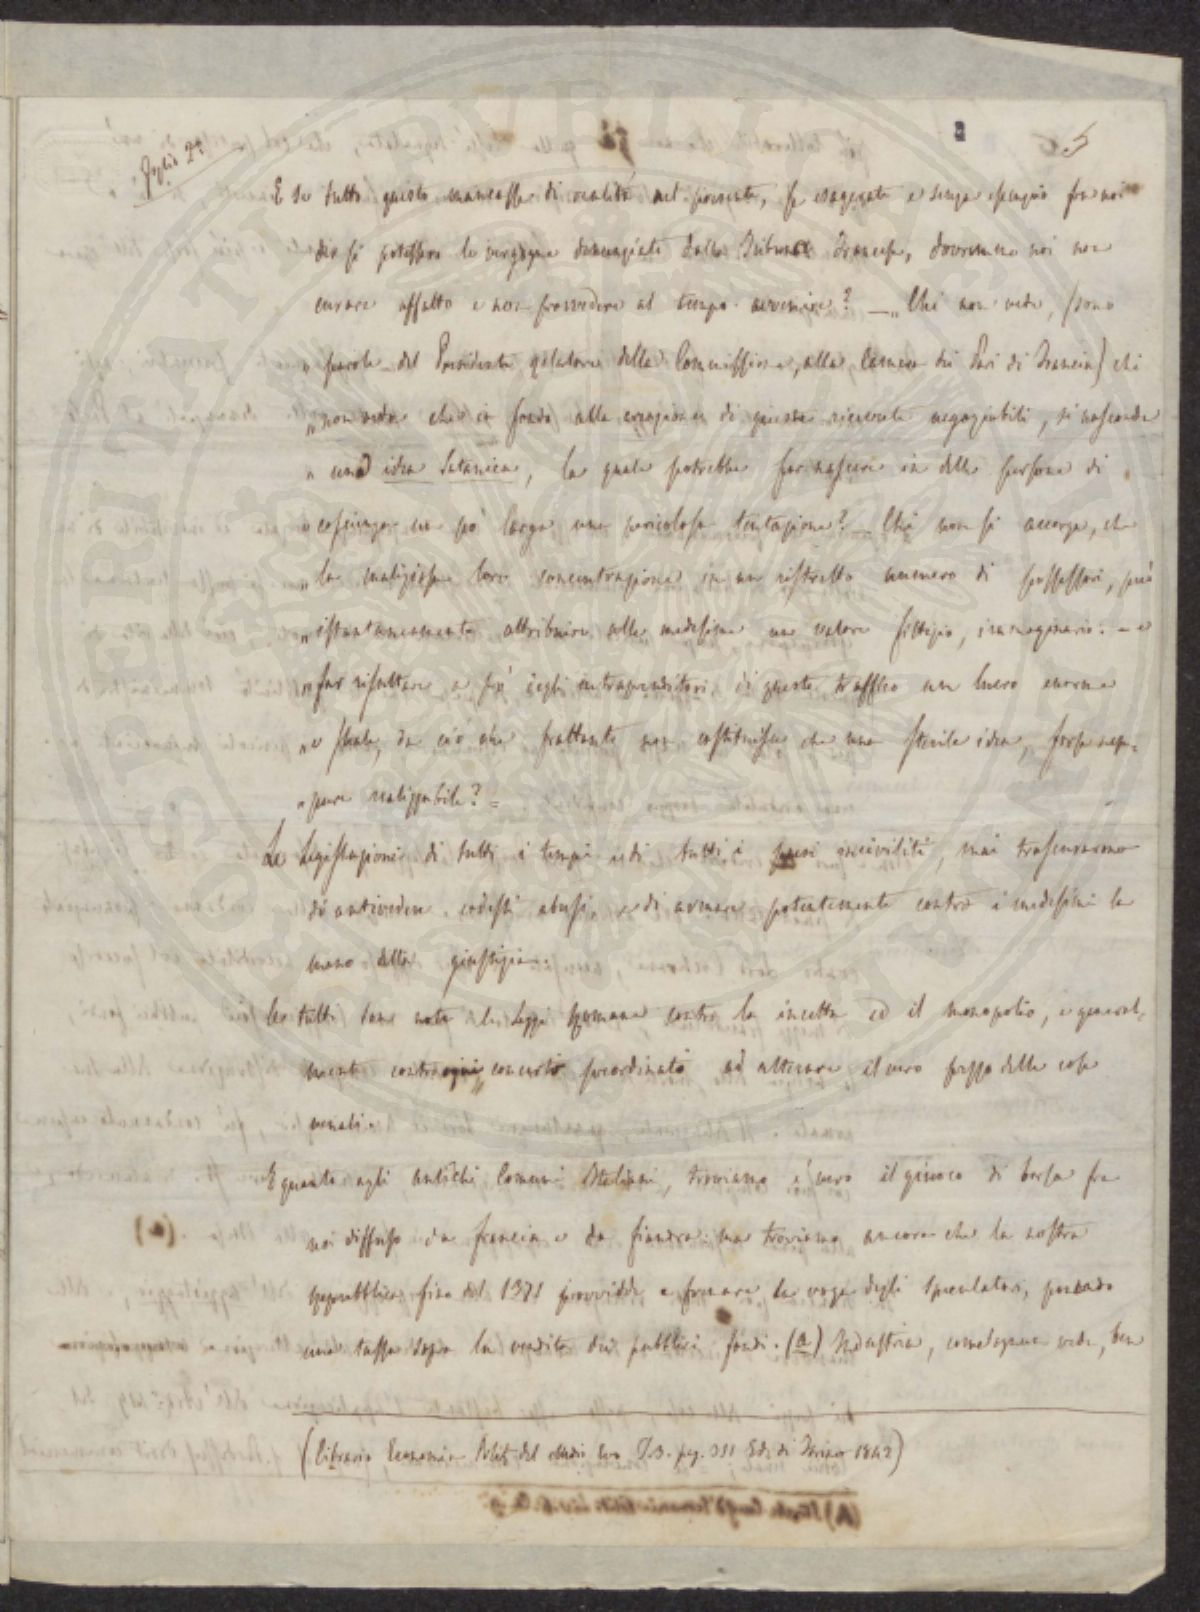 5
Foglio 2°
E se tutto questo mancasse di realità nel presente, se esagerate e senza esempio fra noi
dir si potessero le vergogne denunziate dalla Tribuna Francese, dovremmo noi non
curare affatto e non provvedere al tempo avvenire? — „ Chi non vede, (sono
„ parole del Presidente relatore della Commissione, alla Camera dei Pari di Francia) chi
„ non vede che in fondo alla creazione di queste ricevute negoziabili, si nasconde
„ una idea Satanica, la quale potrebbe far nascere in delle persone di
„ coscienza un po' larga una pericolosa tentazione? — Chi non si accorge, che
„ la maliziosa loro concentrazione in un ristretto numero di possessori, può
„ istantaneamente attribuire alle medesime un valore fittizio, immaginario: — e
„ far risultare a pro' degli intraprenditori di questo traffico un lucro enorme
„ e reale, da ciò che frattanto non costituisce che una sterile idea, forse nep-
„ pure realizzabile? =
Le Legislazioni di tutti i tempi e di tutti i paesi inciviliti, mai trascurarono
di antivedere codesti abusi, e di armare potentemente contro i medesimi la
mano della giustizia.
A tutti sono note le Leggi Romane contro la incetta ed il monopolio, e general-
mente contro ogni concerto preordinato ad alterare il vero prezzo delle cose
venali.
E quanto agli antichi Comuni Italiani, troviamo è vero il giuoco di borsa fra
noi diffuso da Francia e da Fiandra: ma troviamo ancora che la nostra
Repubblica fino del 1371 provvidde a frenare la voga degli Speculatori, ponendo
una tassa sopra la vendita dei pubblici fondi. (a) Industria, come ognun vede, ben
(Cibrario Economia Polit. del Medio Evo T. 3. pag. 311 Ed. di Torino 1842)